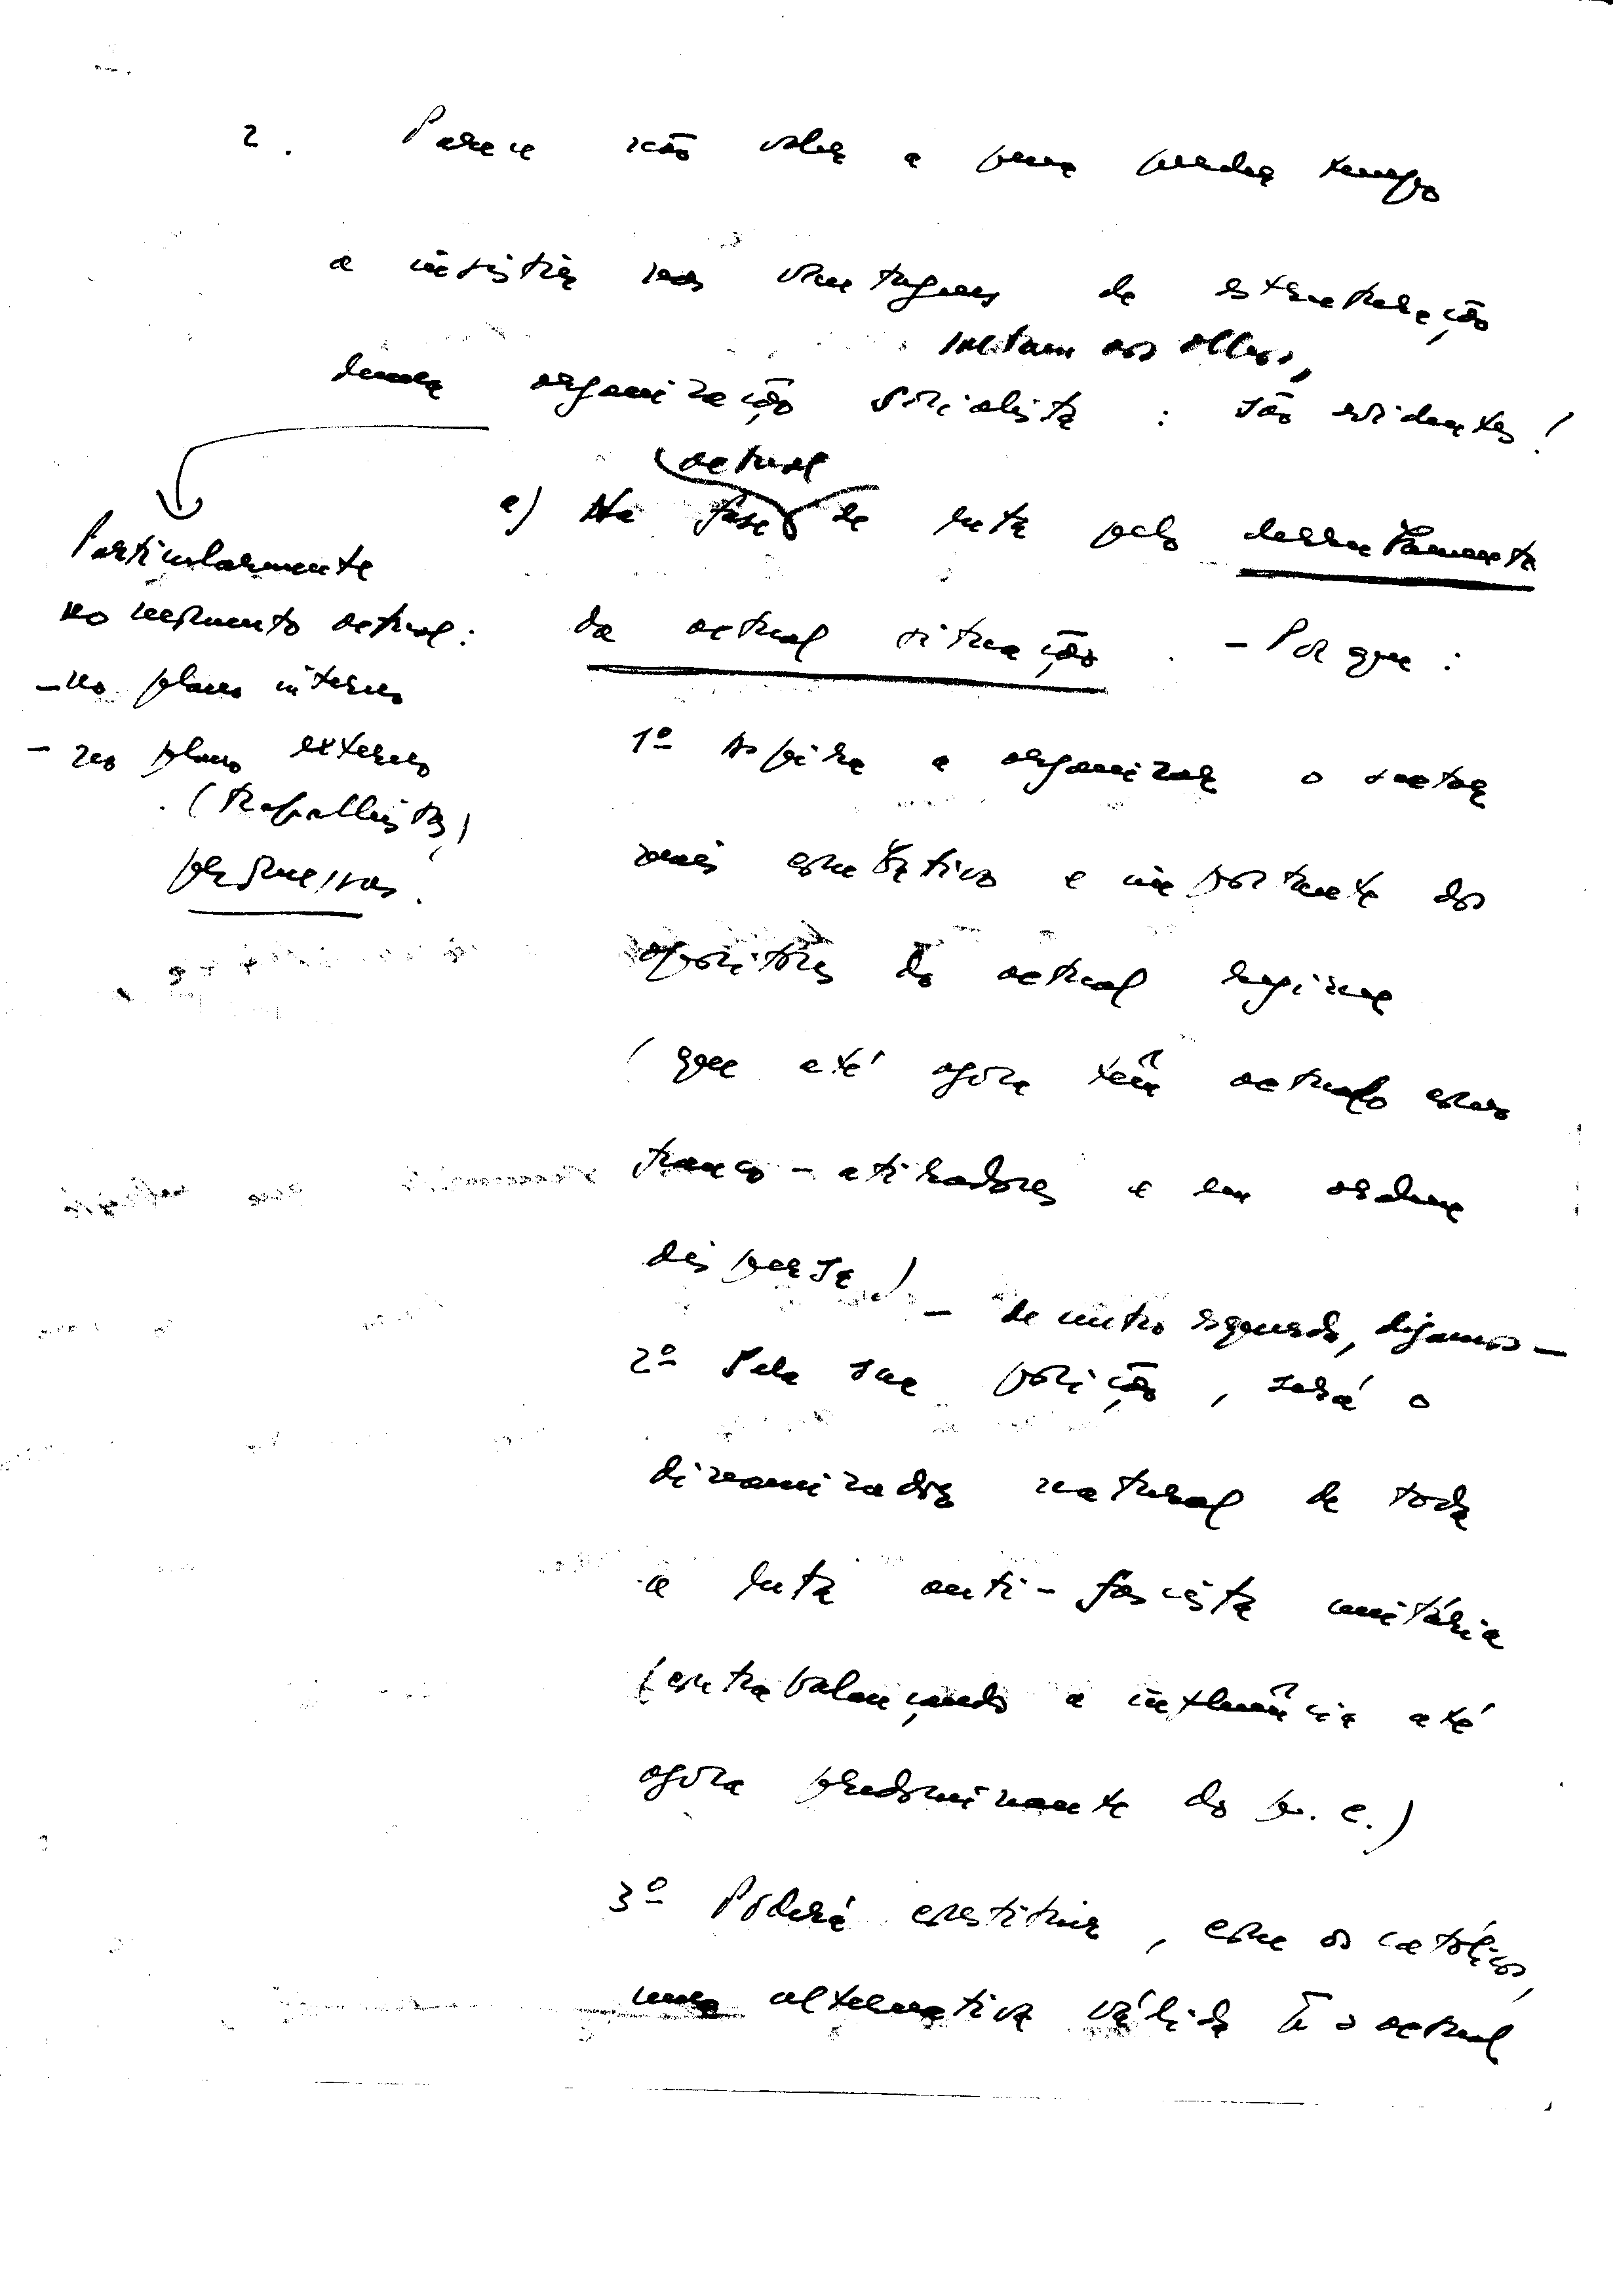 2. Parece não valer a pena perder tempo
a insistir nas vantagens de estruturação
saltam aos olhos,
duma organização socialista : são evidentes!
actual
a) Na fase de luta pelo derrubamento
da actual situação. - Porque :
Particularmente
no momento actual:
- no plano interno
- no plano externo
(trabalhistas)
1º Aspira a organizar o sector
mais combativo e importante dos
opositores do actual regime
(que até agora têm actuado como
franco-atiradores e em ordem
dispersa)
- de centro esquerda, digamos -
2º Pela sua posição, será o
dinamizador natural de toda
a luta anti-fascista unitária
(contrabalançando a influência até
agora predominante do p. c.)
3º Poderá constituir, com os católicos,
uma alternativa válida à actual